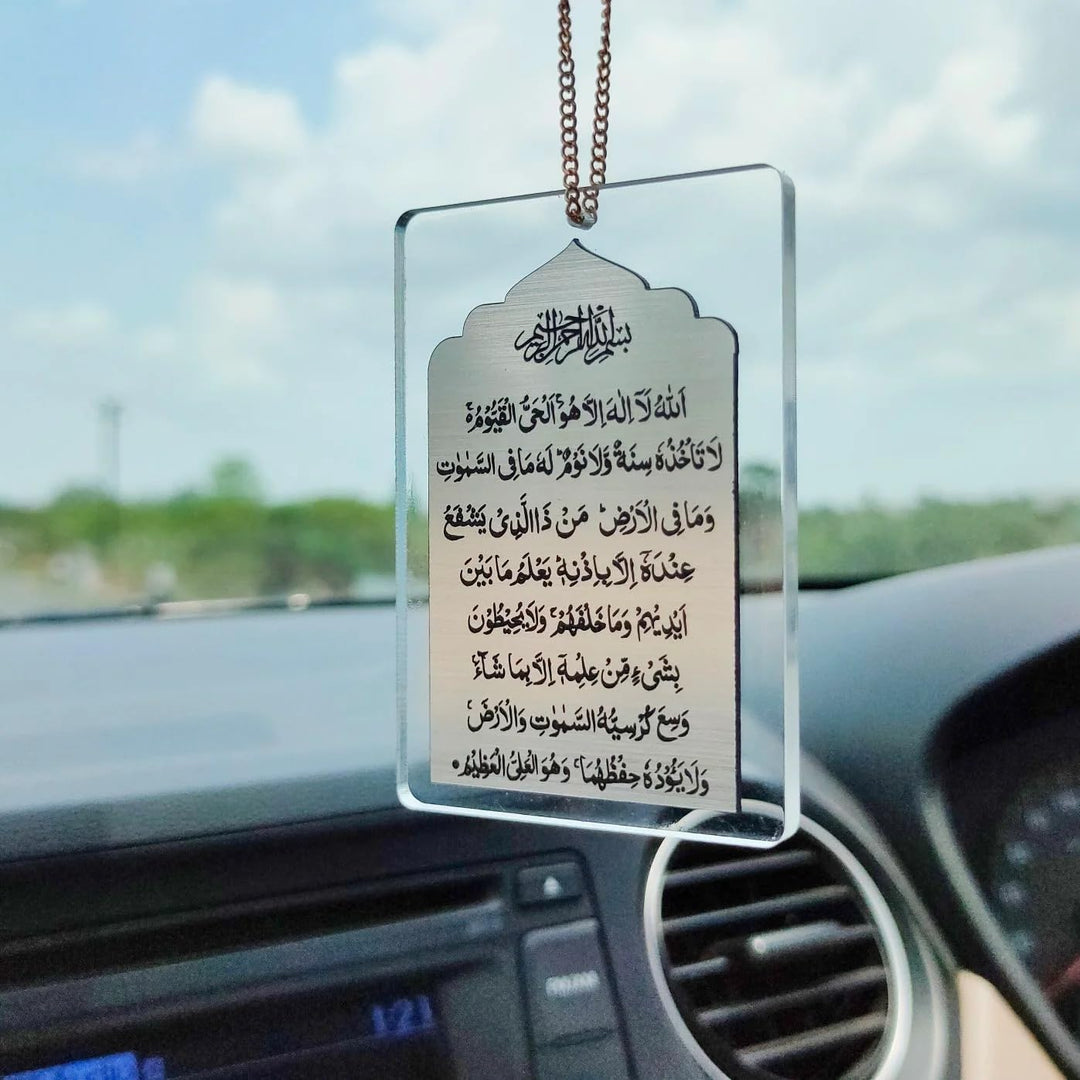 بسم الله الرحمن الرحيم
اَللّٰهُ لَاۤ اِلٰهَ اِلَّا هُوَ ۚ اَلْحَیُّ الْقَیُّوْمُ ۚ
لَا تَاْخُذُهٗ سِنَةٌ وَّلَا نَوْمٌ ؕ لَهٗ مَا فِی السَّمٰوٰتِ
وَمَا فِی الْاَرْضِ ؕ مَنْ ذَا الَّذِیْ یَشْفَعُ
عِنْدَهٗۤ اِلَّا بِاِذْنِهٖ ؕ یَعْلَمُ مَا بَیْنَ
اَیْدِیْهِمْ وَمَا خَلْفَهُمْ ۚ وَلَا یُحِیْطُوْنَ
بِشَیْءٍ مِّنْ عِلْمِهٖۤ اِلَّا بِمَا شَآءَ ۚ
وَسِعَ كُرْسِیُّهُ السَّمٰوٰتِ وَالْاَرْضَ ۚ
وَلَا یَئُوْدُهٗ حِفْظُهُمَا ۚ وَهُوَ الْعَلِیُّ الْعَظِیْمُ
1:21